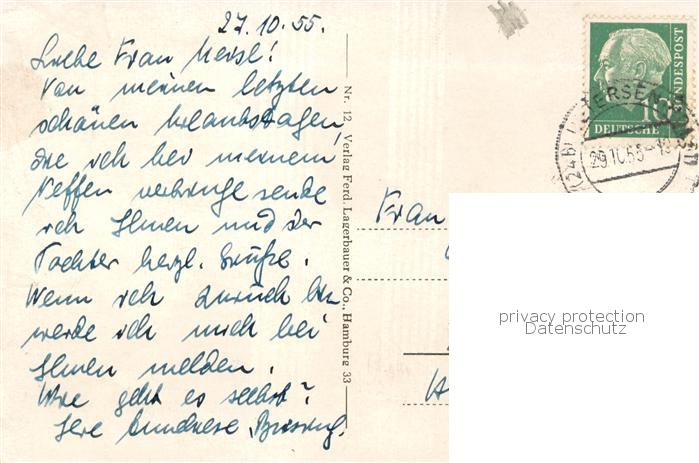 27.10.55.
Liebe Frau
Von meinen letzten
schönen Urlaubstagen,
die ich bei meinem
Neffen verbringe sende
ich Ihnen und der
Tochter herzl. Grüße.
Wenn ich zurück bin
werde ich mich bei
Ihnen melden.
Wie geht es selbst?
Ihre
Nr. 12 Verlag Ferd. Lagerbauer & Co., Hamburg 33
Frau
DEUTSCHE
BUNDESPOST
10
(24b)
29.10.55-18
privacy protection
Datenschutz